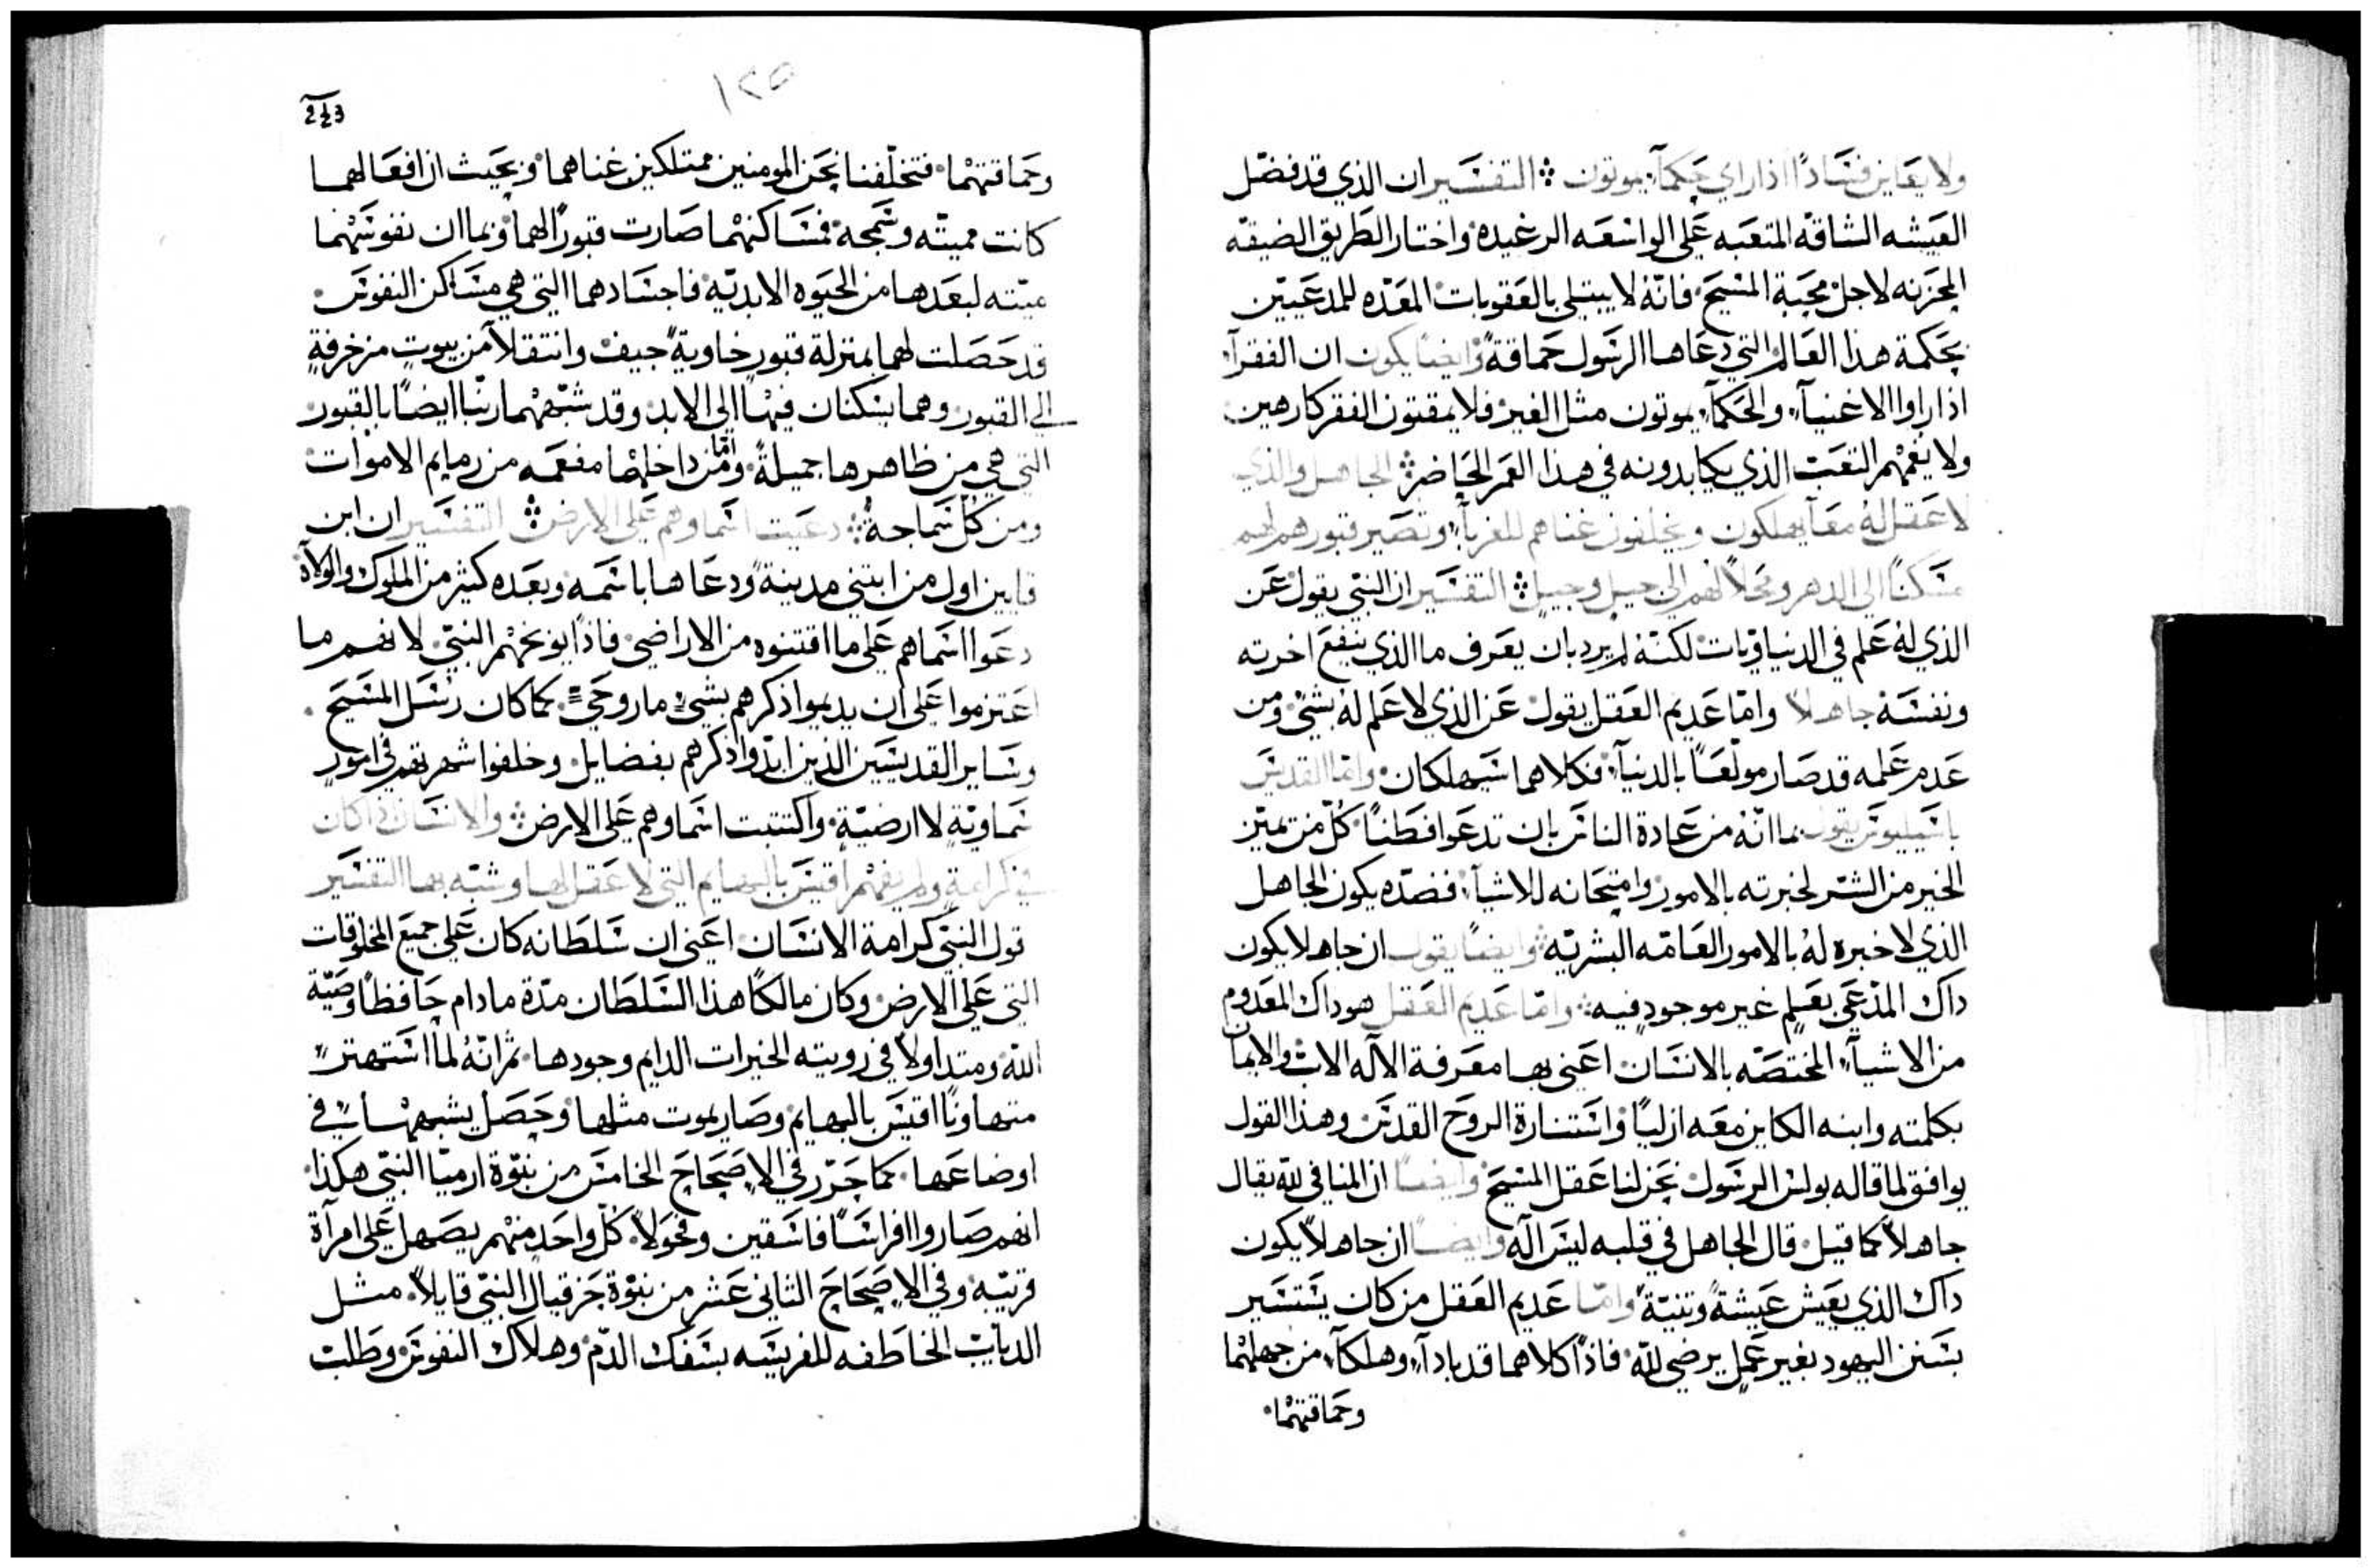 ولا يعَاين فسَادًا اذا راي حكمآء يموتون ۞ التفسَير ان الذي قد فضّل
العَيشه الشاقه المتعَبه عَلى الواسَعَه الرغيده واختار الطَريق الضيقه
المحَزنه لاجل محَبة المسَيحَ فانّه لا يبتلي بالعَقوبات المعَدّه للمدعَيّين
بحَكمة هذا العَالم التي دعَاها الرسَول حَماقةً وايضًا يكون ان الفقرآء
اذا راوا الاغنيآء والحَكمآء يموتون مثل الغير فلا يمقتون الفقر كارهين
ولا يغمّهم التعَب الذي يكابدونه في هذا العَمر الحَاضر ۞ الجاهل والذي
لا عَقل لهُ معَاً يهلكون ويخلفون غناهم للغربآء وتصَير قبورهم لهم
مسَكنًا الى الدهر ومحَلاً لهم الى جيل وجيل ۞ التفسَير ان النبي يقول عَن
الذي لهُ عَلم في الدنياويات لكنّه لم يرد بان يعَرف ما الذي ينفع اخرته
ونفسَهُ جاهلاً وامّا عَديم العَقل يقول عَن الذي لا عَلم لهُ بشيء ومن
عَدم عَلمه قد صَار مولعَاً بالدنيآء فكلاهما سَيهلكان وامّا القديسَ
باسَيليوسَ يقول بما انّه من عَادة الناسَ بان تدعَوا فطَنًا كُلّ من تميّز
الخير من الشر لخبرته بالامور وامتحَانه للاشيآء فضدّه يكون الجاهل
الذي لا خبره لهُ بالامور العَامّه البشريّه وايضًا يقول ان جاهلا يكون
داك المدّعَي بعَلم غير موجودٍ فيه وامّا عَديم العَقل هو داك المعَدوم
من الاشيآء المختصّه بالانسَان اعَني بها معَرفة الاله الاب والايمان
بكلمته وابنه الكاين معَه ازليًا واسَتنارة الروحَ القدسَ وهذا القول
يوافق لما قاله بولسَ الرسَول نحَن لنا عَقل المسَيحَ وايضًا ان المنافي لله يقال
جاهلاً كما قيل قال الجاهل في قلبه ليسَ اله وايضًا ان جاهلاً يكون
داك الذي يعَيش عَيشةً وثنيّة وامّا عَديم العَقل من كان يسَتسَير
بسَنن اليهود بغير عَمل يرضي لله فاذًا كلاهما قد بادآ وهلكآ من جهلهما
وحَماقتهما
١٢٥
243
وحَماقتهما فتخلّفنا نحَن المومنين ممتلكين غناهما وبحَيث ان افعَالهما
كانت مميته وسَمجه فمسَاكنهما صَارت قبورًا لهما وبما ان نفوسَهما
ميّته لبعَدها من الحَيوه الابديّه فاجسَادهما التي هي مسَاكن النفوسَ
قد حَصَلت لهما بمنزلة قبورٍ خاوية جيف وانتقلآ من بيوتٍ مزخرفةٍ
الى القبور وهما يسَكنان فيها الى الابد وقد شبّههما ربّنا ايضًا بالقبور
التي هي من ظاهرها جميلةً وامّا من داخلها مفعَمه من رمايم الاموات
ومن كلّ سَماجه ۞ دعَيت اسَماوهم عَلى الارض ۞ التفسَير ان ابن
قايين اول من ابتني مدينة ودعَاها باسَمه وبعَده كثير من الملوك والولاة
دعَوا اسَماهم عَلى ما اقتنوه من الاراضي فاذًا يوبخهم النبيّ لانهم ما
اعَتزموا عَلى ان يديموا ذكرهم بشيءٍ ما روحَيّ كما كان رسَل المسَيحَ
وسَاير القديسَين الذين ابدّوا ذكرهم بفضايل وخلفوا شهرتهم في امورٍ
سَماويّه لا ارضيّة واكتتبت اسَماوهم عَلى الارض ۞ والانسَان اذ كان
في كرامةٍ ولم يفهم اقيسَ بالبهايم التي لا عَقل لها وشبّه بها التفسَير
قول النبيّ كرامة الانسَان اعَني ان سَلطَانه كان عَلى جميعَ المخلوقات
التي عَلى الارض وكان مالكًا هذا السَلطَان مدّة ما دام حَافظًا وصَيّة
الله ومتداولاً في رويته الخيرات الدايم وجودها ثم انّهُ لما اسَتهتر
متهاونًا اقيسَ بالبهايم وصَار يموت مثلها وحَصَل يشبهها في
اوضاعَها كما حَرّر في الاصَحَاحَ الخامسَ من نبوّة ارميّا النبيّ هكذا
انهم صَاروا افراسَاً فاسَقين وفحَولاً كُلّ واحَد منهم يصَهل عَلى امرآة
قريبه وفي الاصَحَاحَ الثاني عَشر من نبوّة حَزقيال النبيّ قايلاً مثل
الدياب الخاطَفه للفريسَه بسَفك الدّم وهلاك النفوسَ وطَلب